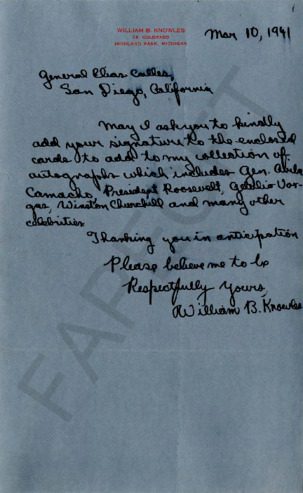 WILLIAM B. KNOWLES
HIGHLAND PARK, MICHIGAN
Mar 10, 1941
General Elias Calles,
San Diego, California
May I ask you to kindly
add your signature to the enclosed
cards to add to my collection of
autographs which includes Gen. Avila
Camacho, President Roosevelt, Getulio Var-
gas, Winston Churchill and many other
celebrities
Thanking you in anticipation
Please believe me to be
Respectfully yours,
William B. Knowles